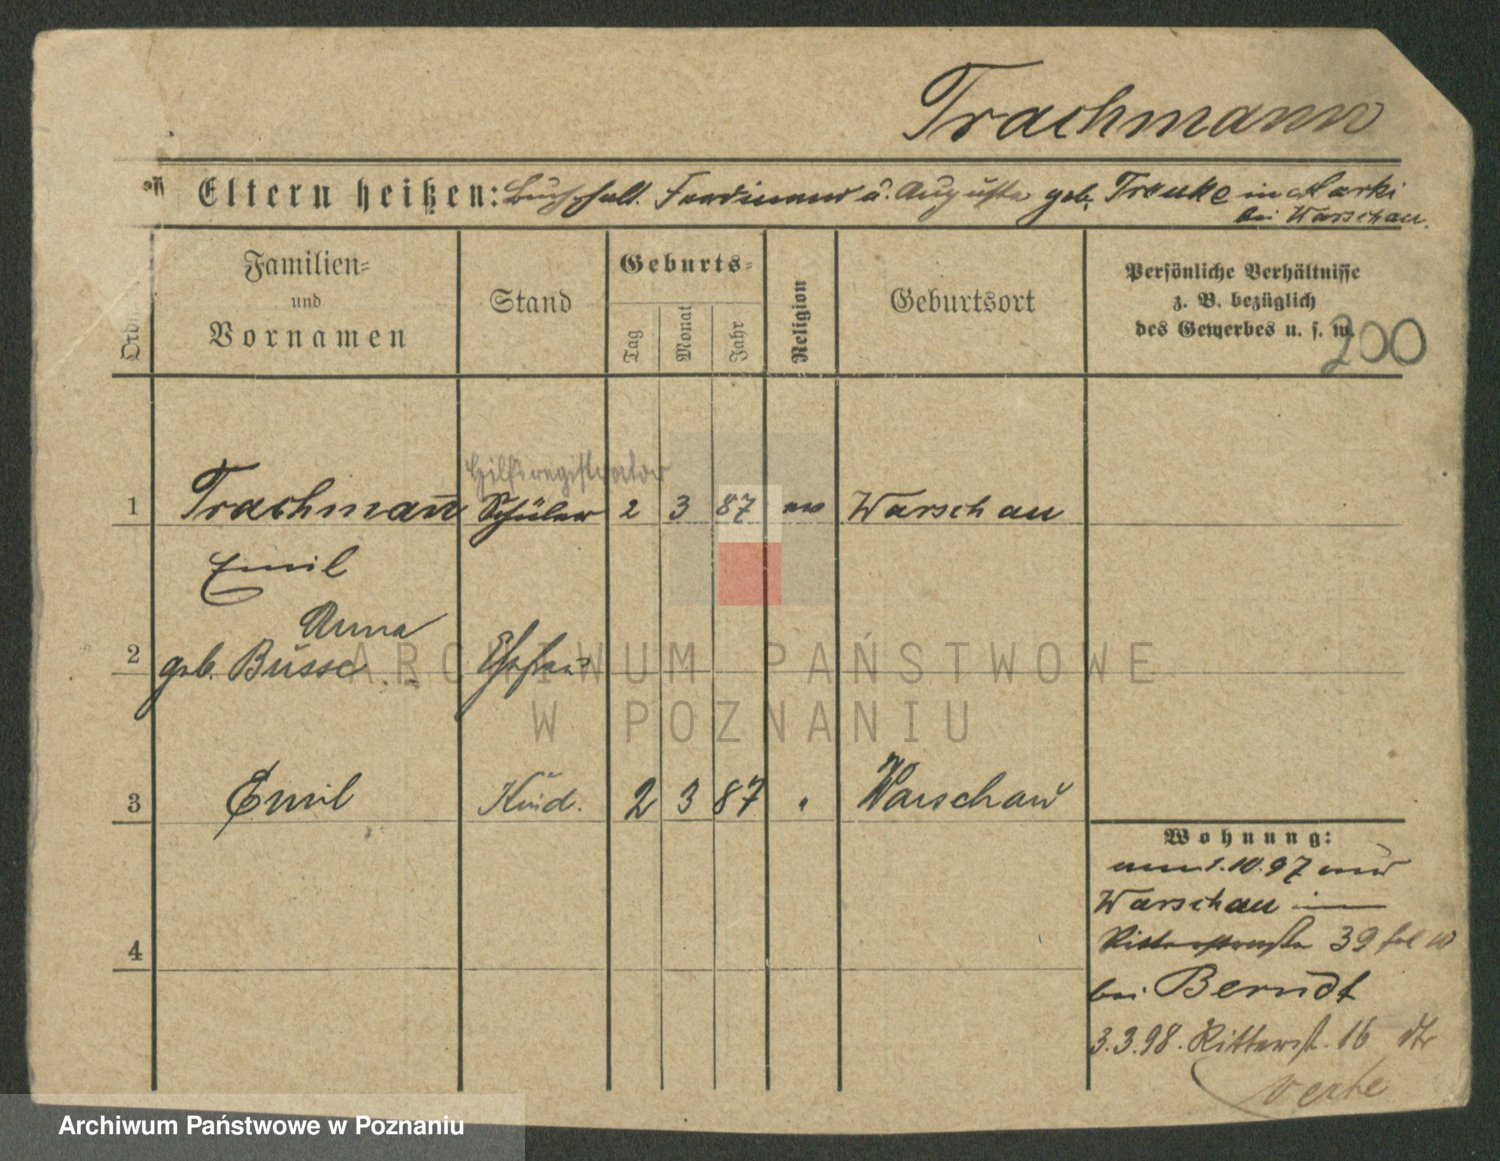 Trachmann
Eltern heißen: Buchhalt. Ferdinand u. Auguste geb. Trenke in Marki
bei Warschau.
Ordn.
Familien-
und
Vornamen
Stand
Geburts-
Tag
Monat
Jahr
Religion
Geburtsort
Persönliche Verhältnisse
z. B. bezüglich
des Gewerbes u. s. w.
200
Hilfsregistrator
1 Trachmann Schüler 2 3 87 ev Warschau
Emil
Anna
2 geb. Busse Ehefrau
3 Emil Kind. 2 3 87 " Warschau
Wohnung:
am 1.10.97 aus
Warschau in
Ritterstraße 39
4
bei Berndt
3.3.98. Ritterst. 16
verte
ARCHIWUM PAŃSTWOWE
W POZNANIU
Archiwum Państwowe w Poznaniu